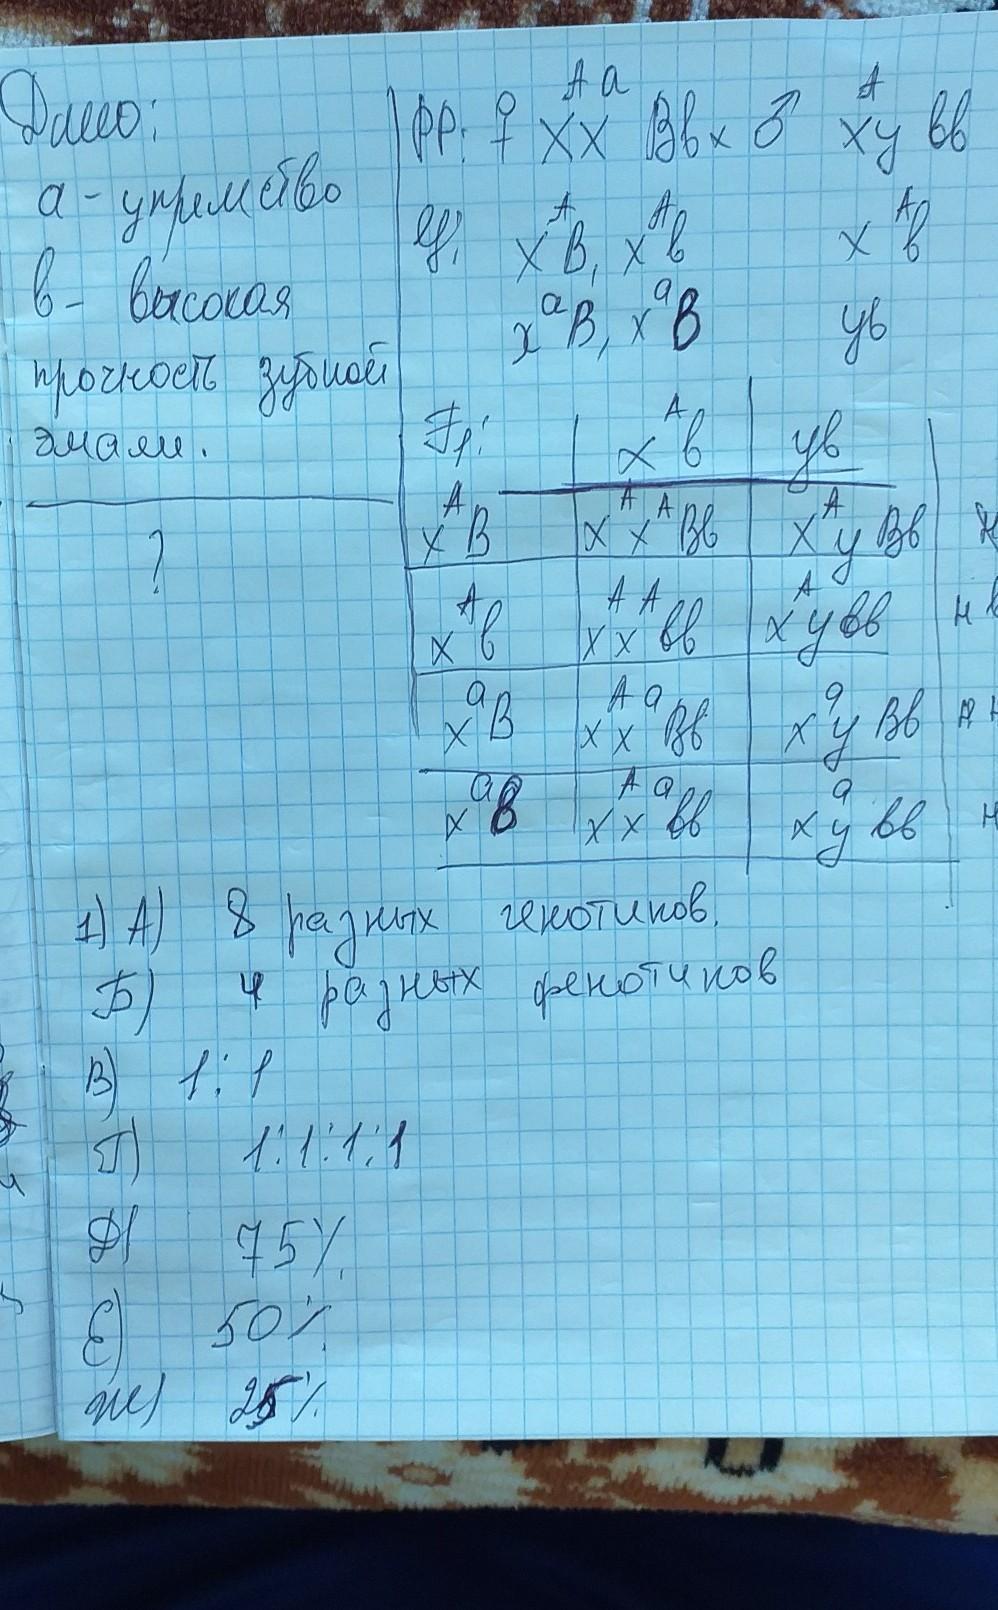 Дано:
а - упрямство
в - высокая
прочность зубной
эмали.
?
РР: ♀ XᴬXᵃ Вв x ♂ Xᴬy вв
G: XᴬВ, Xᴬв Xᴬв
XᵃВ, Xᵃв yв
F₁: Xᴬв yв
XᴬВ XᴬXᴬВв XᴬyВв
Xᴬв XᴬXᴬвв Xᴬyвв
XᵃВ XᴬXᵃВв XᵃyВв
Xᵃв XᴬXᵃвв Xᵃyвв
1) А) 8 разных генотипов.
Б) 4 разных фенотипов
В) 1:1
Г) 1:1:1:1
Д) 75%.
Е) 50%.
Ж) 25%.